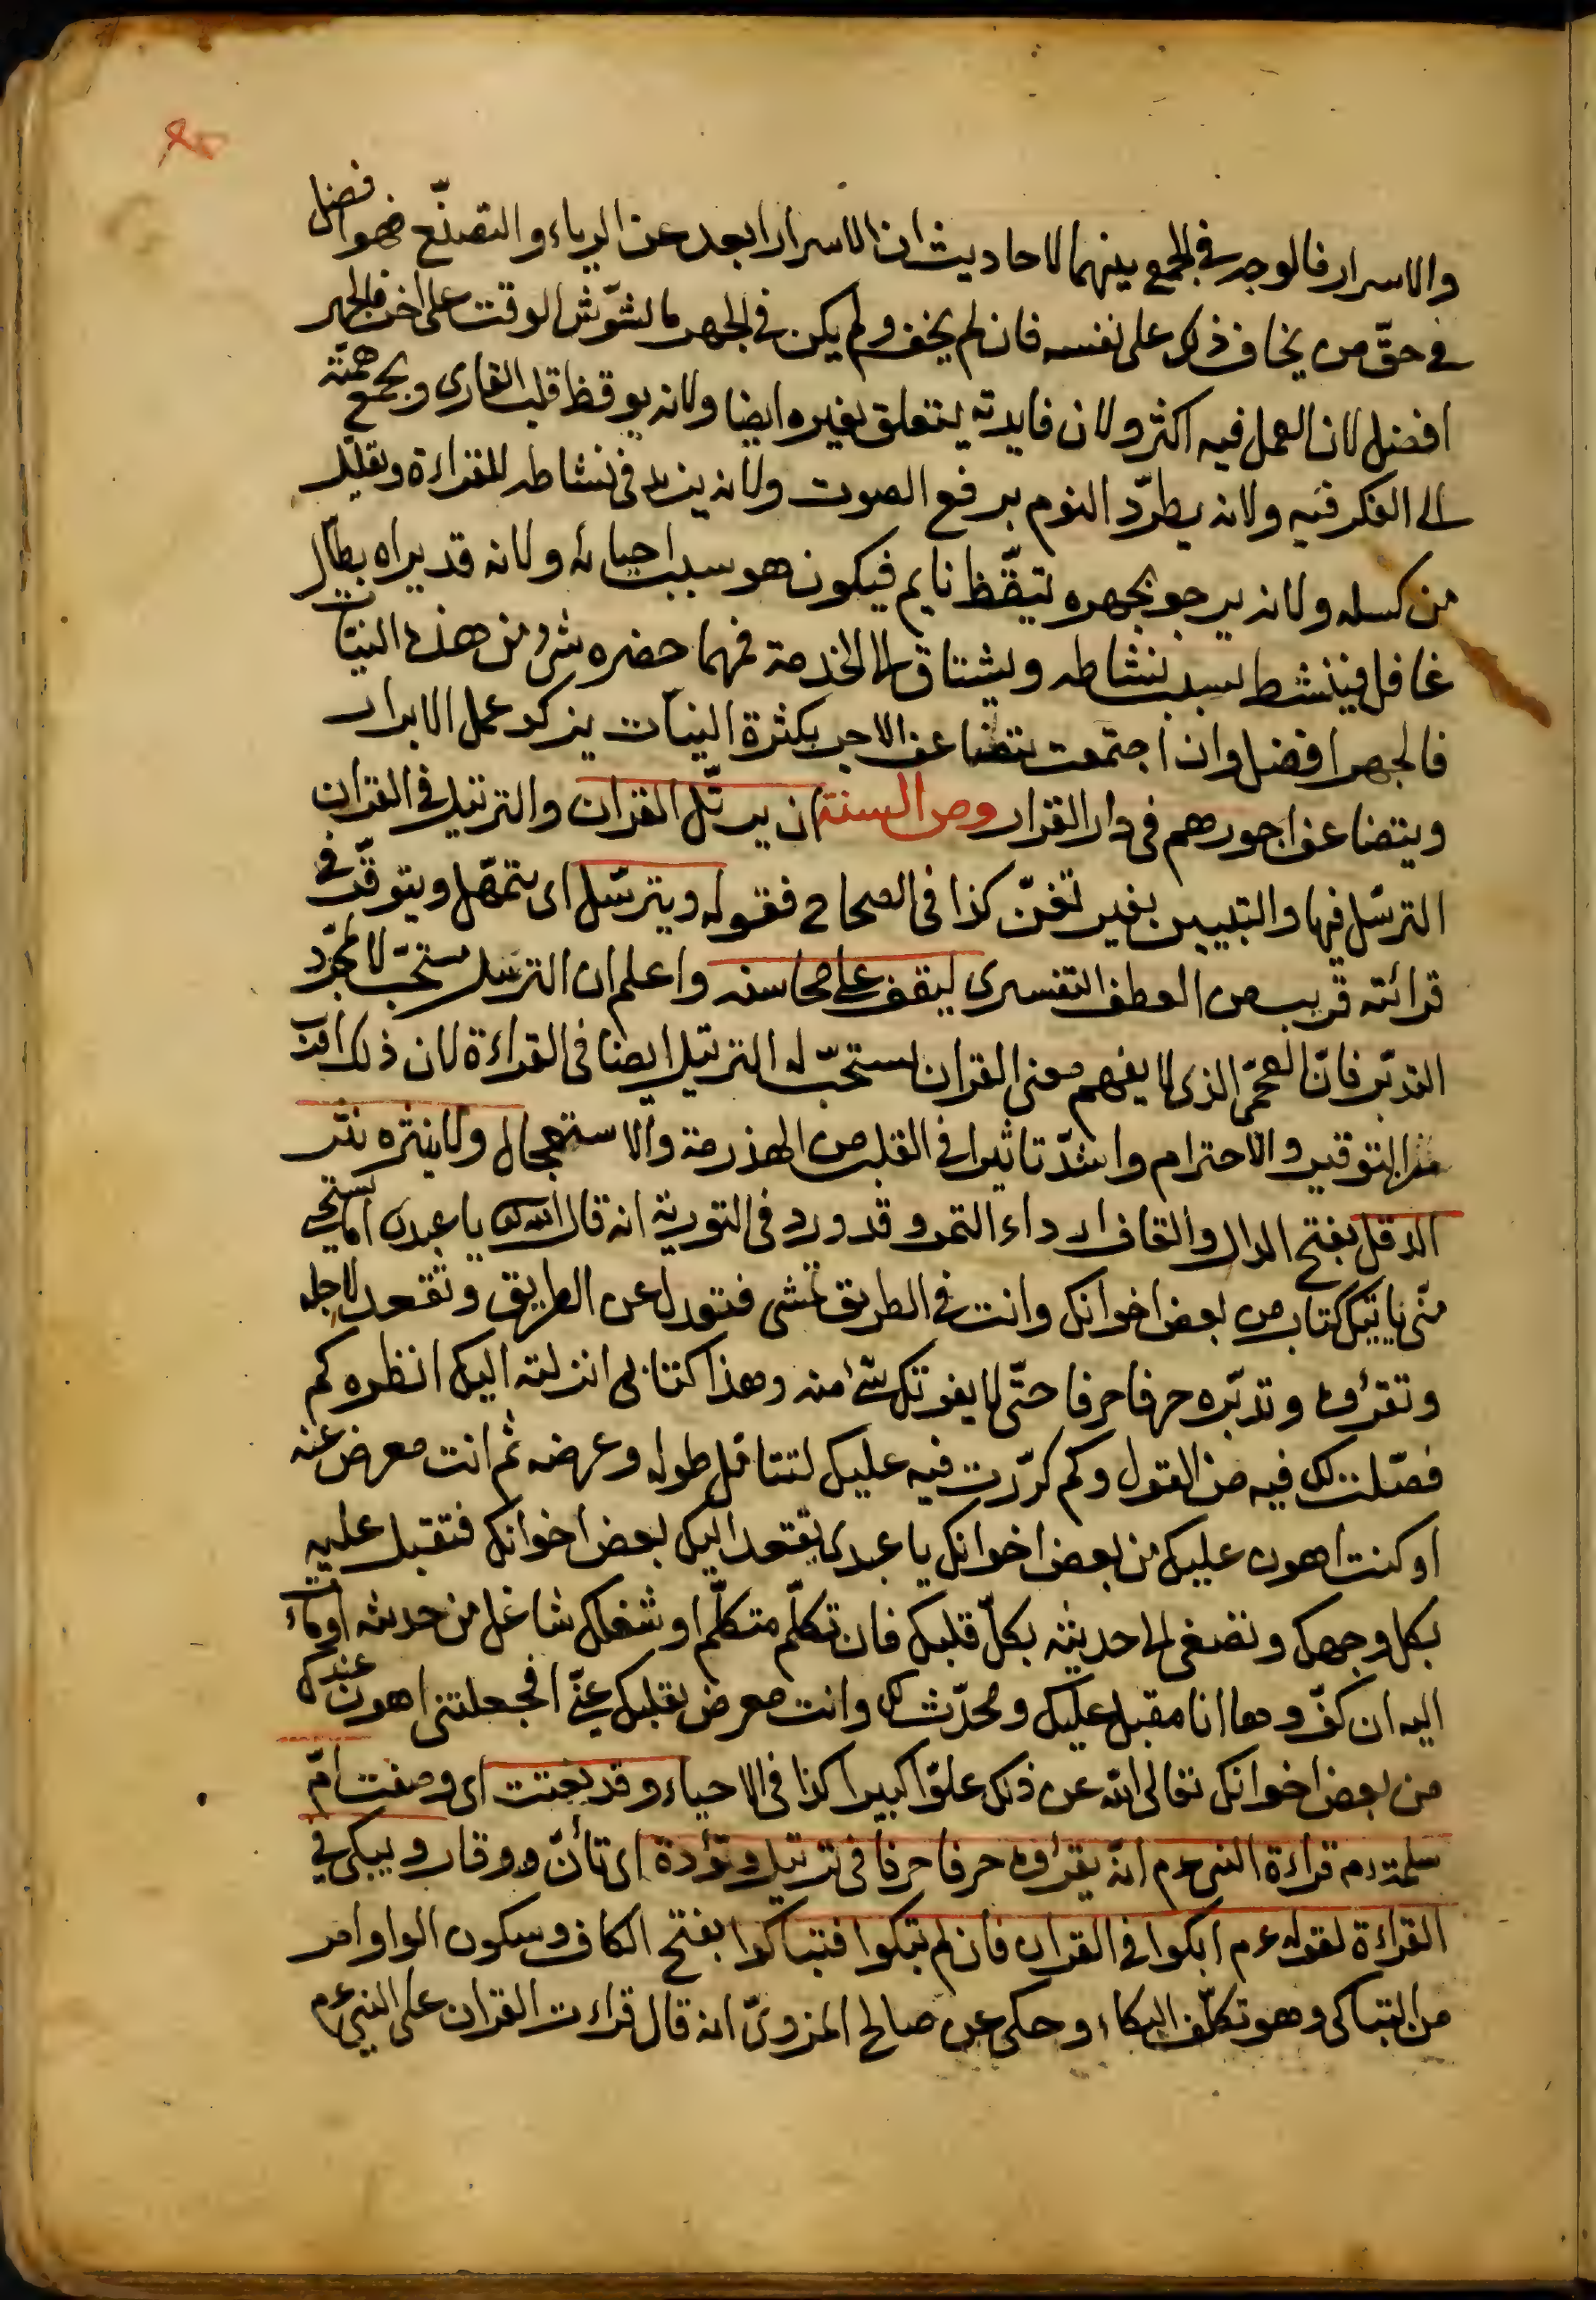 والاسرار فالوجه في الجمع بينهما لاحاديث ان الاسرار ابعد عن الرياء والتصنّع فهو افضل
في حقّ من يخاف ذلك على نفسه فان لم يخف ولم يكن في الجهر ما يشوّش الوقت على اخر فالجهر
افضل لان العمل فيه اكثر ولان فايدته يتعلق بغيره ايضا ولانه يوقظ قلب القارى ويجمع همّته
الى الفكر فيه ولانه يطرّد النوم برفع الصوت ولانه يزيد في نشاطه للقراءة وتقليل
من كسله ولانه يرجو بجهره تيقّظ نايم فيكون هو سبب احيائه ولانه قد يراه بطّال
غافل فينشط بسبب نشاطه ويشتاق الى الخدمة فمهما حضره شئ من هذه النيّات
فالجهر افضل وان اجتمعت يتضاعف الاجر بكثرة النيّات يزكو عمل الابرار
ويتضاعف اجورهم في دار القرار ومن السنة ان يرتّل القران والترتيل في القران
الترسّل فيها والتبيين بغير تغنّ كذا في الصحاح فقوله ويترسّل اى يتمهّل ويتوقّر في
قرائته قريب من العطف التفسيرى ليقف على محاسنه واعلم ان الترسّل مستحبّ لا لمجرّد
التدبّر فانّ العجمّى الذى لا يفهم معنى القران يستحبّ له الترتيل ايضا في القراءة لان ذلك اقرب
من التوقير والاحترام واشدّ تاثيرا في القلب من الهذرمة والاستعجال ولا ينثره نثر
الدقل بفتح الدال والقاف ارداء التمر وقد ورد في التورية انه قال الله تع يا عبدى اما يستحى
منّى ياتيك كتاب من بعض اخوانك وانت في الطريق تمشى فتعدل عن الطريق وتقعد لاجله
وتقرؤه وتدبّره حرفا حرفا حتّى لا يفوتك شئ منه وهذا كتابى انزلته اليك انظره كم
فصّلت لك فيه من القول وكم كرّرت فيه عليك لتتامّل طوله وعرضه ثم انت معرض عنه
او كنت اهون عليك من بعض اخوانك يا عبدى يقعد اليك بعض اخوانك فتقبل عليه
بكل وجهك وتصغى الى حديثه بكلّ قلبك فان تكلّم متكلّم او شغلك شاغل من حديثه اومات
اليه ان كفّ وها انا مقبل عليك ومحدّث لك وانت معرض بقلبك عنّى افجعلتنى اهون عندك
من بعض اخوانك تعالى الله عن ذلك علوّا كبيرا كذا في الاحياء وقد نعتت اى وصفت امّ
سلمة رم قراءة النبى عم انّه يقرؤه حرفا حرفا في ترتيل وتؤدة اى تأنّ ووقار ويبكى في
القراءة لقوله عم ابكوا في القران فان لم تبكوا فتباكوا بفتح الكاف وسكون الواو امر
من التباكى وهو تكلّف البكاء وحكى عن صالح المزوىّ انه قال قراءت القران على النبى عم